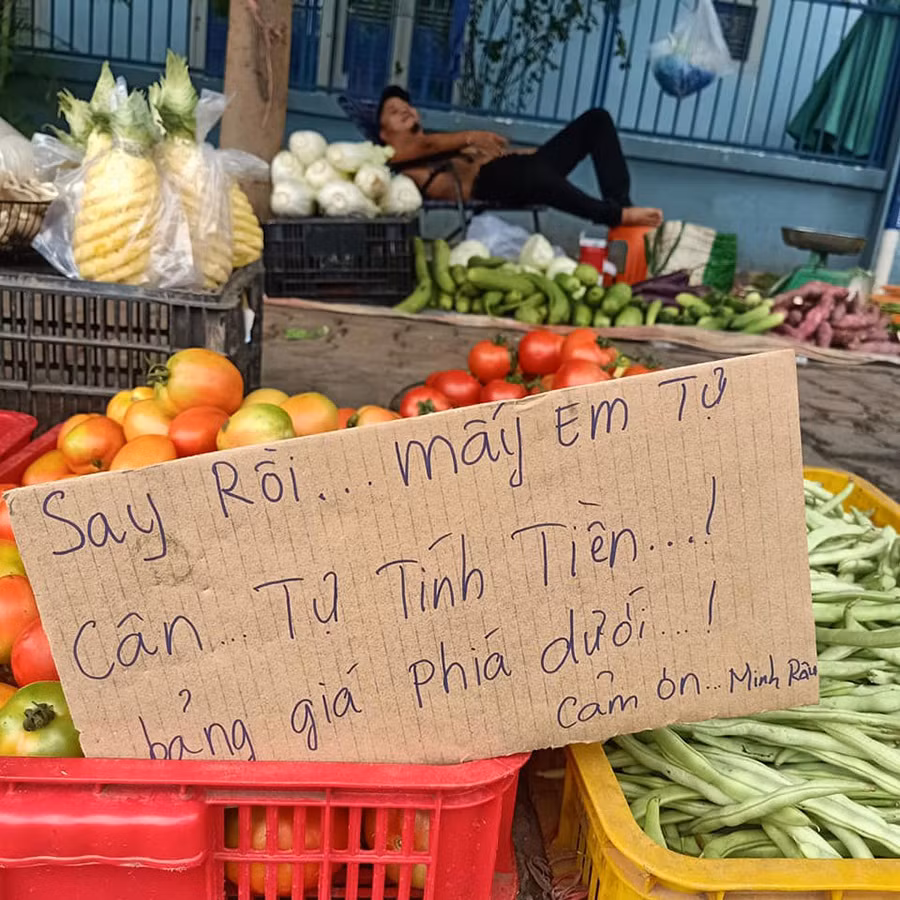 Say Rồi... mấy Em Tự
Cân... Tự Tính Tiền...!
bảng giá Phiá dưới...!
cảm ơn.. Minh Râu